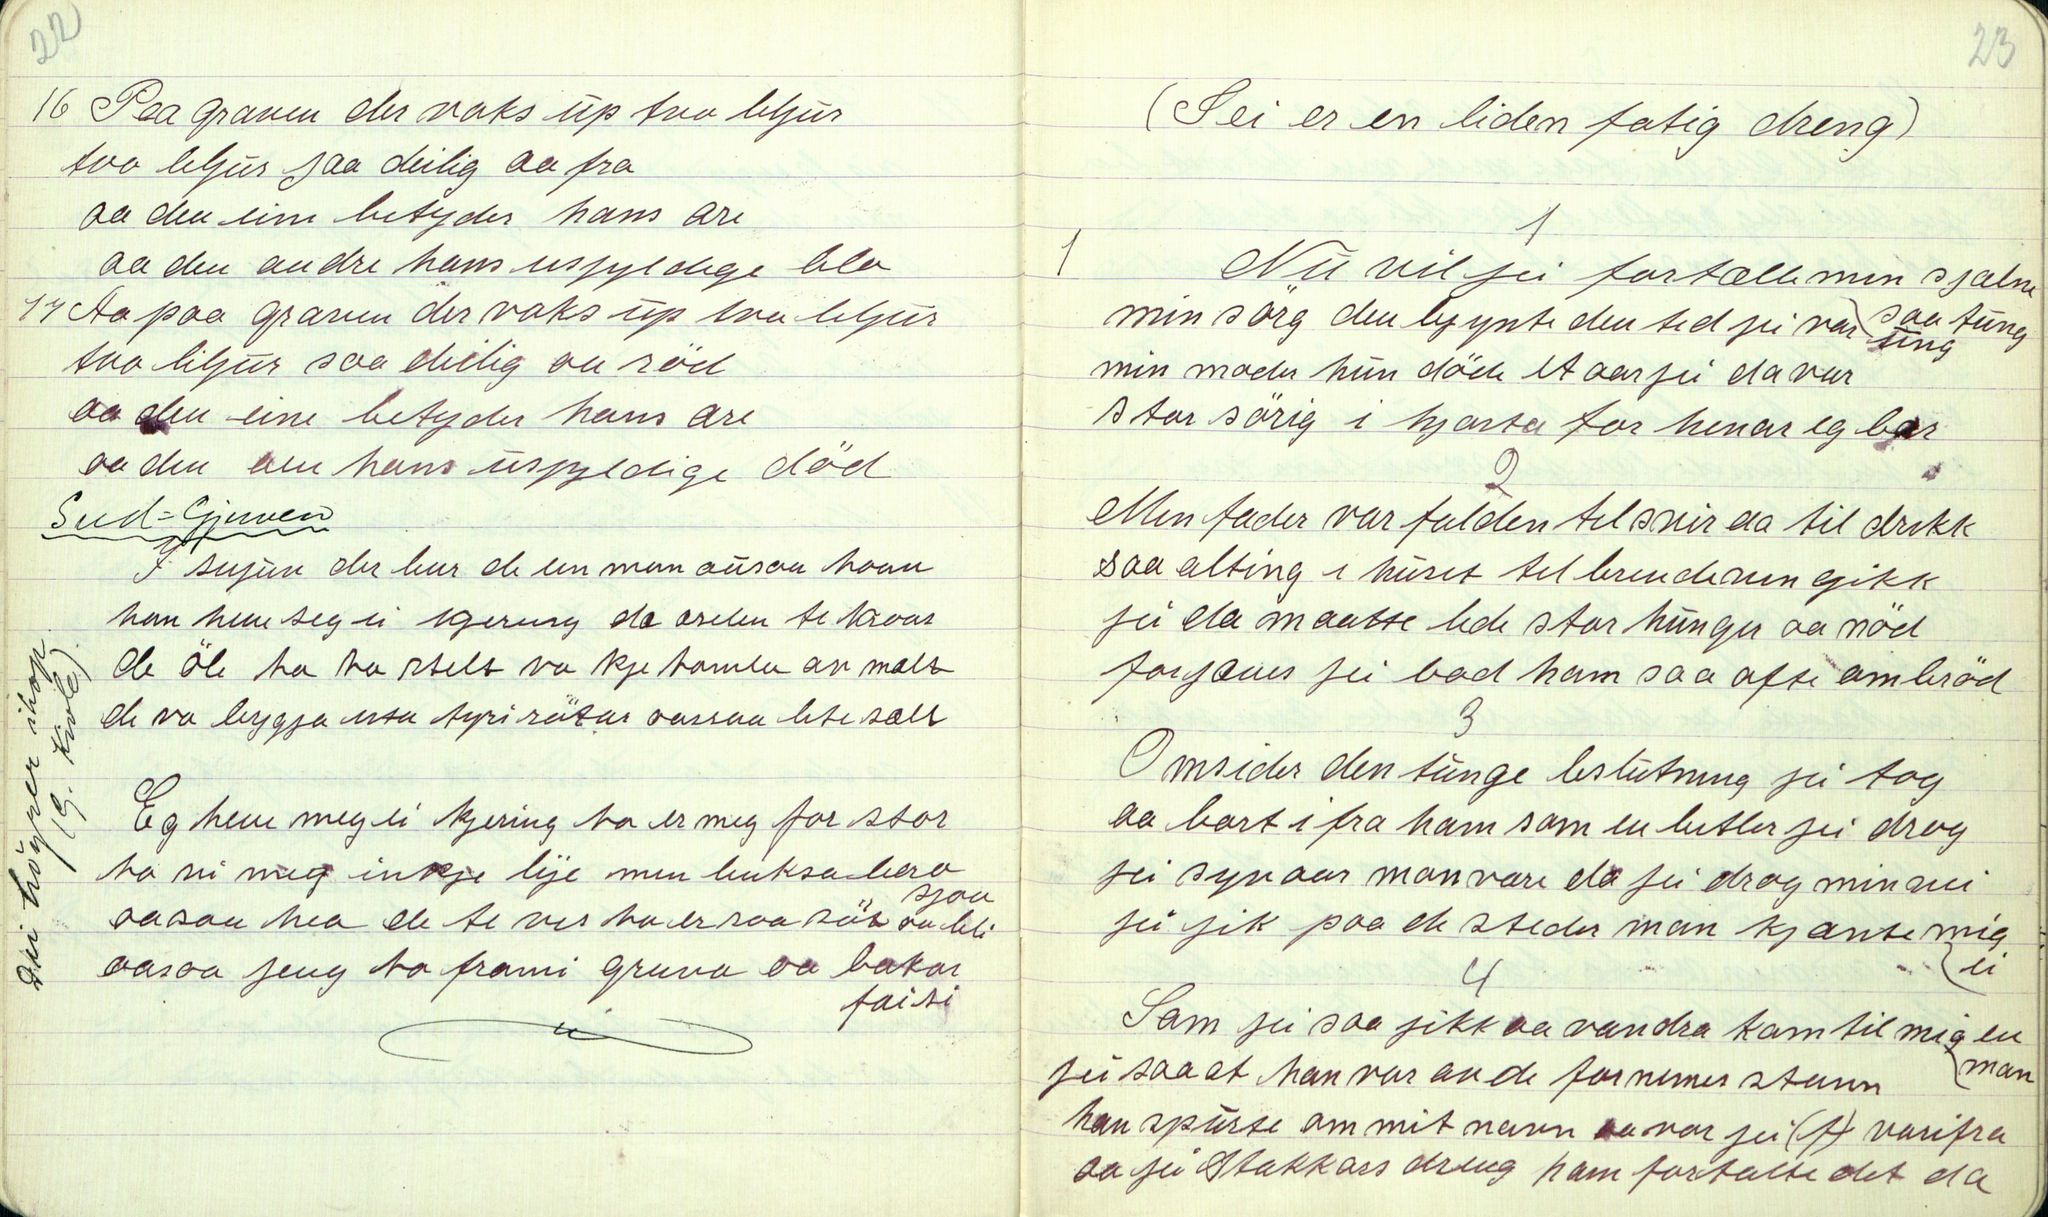 22
16 Paa graven der voks üp tvo liljür
tvo liljür saa deilig aa fra
aa den eine betyder hans are
aa den andre hans uspyldige blo
17 Aa paa graven der voks üp tvo liljür
tvo liljür saa deilig aa röd
aa den eine betyder hans are
aa den aen hans üspyldige död
Sud-Gjuven
I sujun der bur de en man aüsaa haan
han heve seg ei kjering de
de öle ho ho va kje av malt
de va brygja uta tyri rötar aassaa lite salt
Eg heve meg ei kjering ho er meg for stor
ho vi meg inkje lye men buksa bera
aasaa hea de te ves ho er saa söt aa bli
sjaa
aasaa jeng ho fram i gruva aa bakar
faisi
Dei höyrer ihop
(G. Kvole)
23
(Jei er en liden fatig dreng)
1
1 Nü vil jei fortælle men sjalne
min sörg den byynte den ted jei var saa tüng
üng
min moder hün döde aar jei da var
stor sörig i hjarta for henar eg bar
2
Men fader var falden til svir aa til drikk
saa alting i hüset til brendevin gjikk
jei da maatte lide stor hünger aa nöd
forjæves jei bad ham saa ofte om bröd
3
Omsider den tünge beslütning jei tog
aa bort ifra ham som en betler jei drog
jei syv aar mon vare da jei drog min vei
jei jik paa de steder man kjante mig
ei
4
Som jei saa jikk aa vandra kom til mig en
man
jei saa at han var av de fornemes stann
han spürte om mit navn aa vor jei (f) varifra
aa jei Stakkars dreng ham fortalte det da